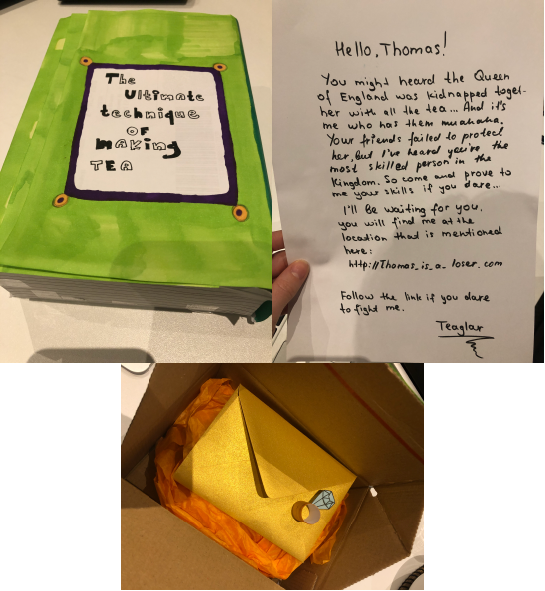 The
Ultimate
technique
OF
making
TEA
Hello, Thomas!
You might heard the Queen
of England was kidnapped toget-
her with all the tea... And it's
me who has them muahaha.
Your friends failed to protect
her, but I've heard you're the
most skilled person in the
Kingdom. So come and prove to
me your skills if you dare...
I'll Be waiting for you,
you will find me at the
location that is mentioned
here:
http://Thomas_is_a_loser.com
Follow the link if you dare
to fight me.
Teaglar